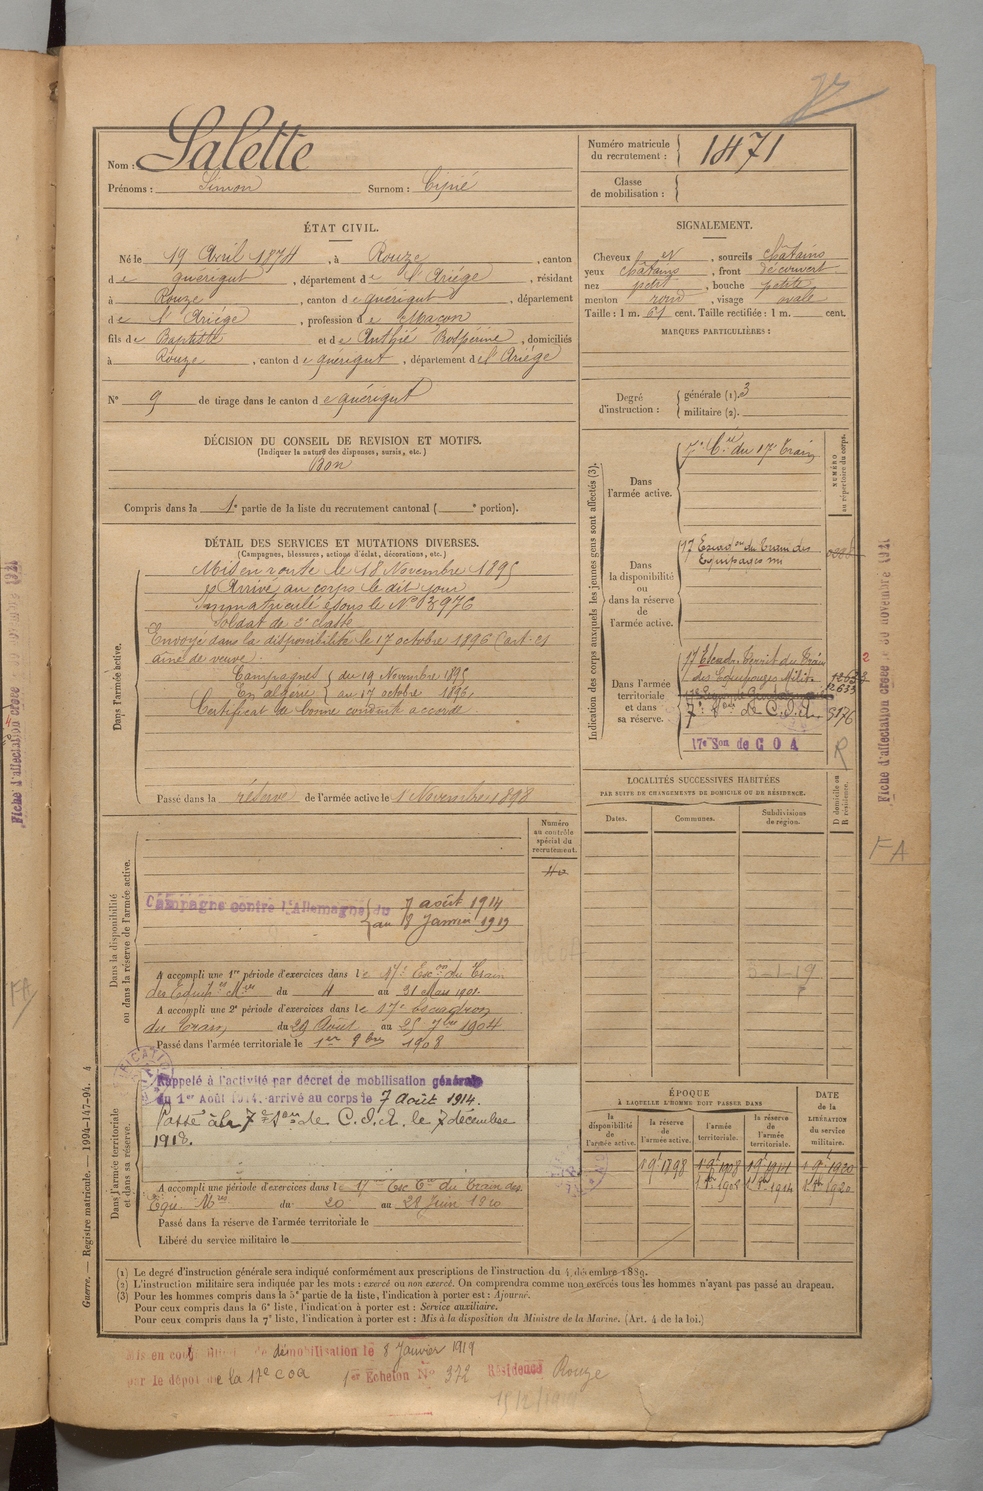 Nom : Salette
Prénoms : Simon Surnom : Cyrié
ÉTAT CIVIL.
Né le 19 Avril 1874, à Rouze, canton
de quérigut, département de l'Ariége, résidant
à Rouze, canton de quérigut, département
de l'Ariége, profession de Maçon
fils de Baptiste et de Authié, domiciliés
à Rouze, canton de quérigut, département de l'Ariége
N° 9 de tirage dans le canton de quérigut
DÉCISION DU CONSEIL DE REVISION ET MOTIFS.
(Indiquer la nature des dispenses, sursis, etc.)
Bon
Compris dans la 1e partie de la liste du recrutement cantonal ( e portion).
DÉTAIL DES SERVICES ET MUTATIONS DIVERSES.
(Campagnes, blessures, actions d'éclat, décorations, etc.)
Dans l'armée active.
Mis en route le 18 Novembre 1895
Arrivé au corps le dit jour
Immatriculé sous le N°
Soldat de 2e classe
Envoyé dans la disponibilité le 17 octobre 1896 (art. 21
aîné de veuve)
Campagnes { du 19 Novembre 1895
En algérie { au 17 octobre 1896
Certificat de bonne conduite accordé
Passé dans la réserve de l'armée active le 1 Novembre 1898
Dans la disponibilité
ou dans la réserve de l'armée active.
Numéro
au contrôle
spécial du
recrutement.
Campagne contre l'Allemagne du 7 août 1914
au 8 Janvier 1919
A accompli une 1re période d'exercices dans le 17e Escon du Train
des Equip.es Mres du 4 au 31 Mars 1901.
A accompli une 2e période d'exercices dans le 17e Escadron
du Train du 29 Août au 25 7bre 1904
Passé dans l'armée territoriale le 1er 1908
Dans l'armée territoriale
et dans sa réserve.
Rappelé à l'activité par décret de mobilisation générale
du 1er Août 1914. arrivé au corps le 7 Août 1914.
Passé à la 7e Son de C.O.A. le 7 décembre
1918.
A accompli une période d'exercices dans le 17e Esc. du Train des
Equ. Mres du 20 au 28 Juin
Passé dans la réserve de l'armée territoriale le
Libéré du service militaire le
Numéro matricule
du recrutement : 1471
Classe
de mobilisation :
SIGNALEMENT.
Cheveux et, sourcils châtains
yeux châtains, front découvert
nez petit, bouche petite
menton rond, visage ovale
Taille : 1 m. 61 cent. Taille rectifiée : 1 m. cent.
MARQUES PARTICULIÈRES :
Degré
d'instruction :
générale (1). 3
militaire (2).
Indication des corps auxquels les jeunes gens sont affectés (3).
NUMÉRO
au répertoire du corps.
Dans
l'armée active.
7e Cie du 17e Train
Dans
la disponibilité
ou
dans la réserve
de
l'armée active.
17 Escadon du Train des
Equipages
Dans l'armée
territoriale
et dans
sa réserve.
17 Escad. Territ du Train
des Equipages Milit.
12633
12633
7e Son de C.O.A.
3176
17e Son de C O A
R
LOCALITÉS SUCCESSIVES HABITÉES
PAR SUITE DE CHANGEMENTS DE DOMICILE OU DE RÉSIDENCE.
D domicile ou
R résidence.
Dates.
Communes.
Subdivisions
de région.
ÉPOQUE
À LAQUELLE L'HOMME DOIT PASSER DANS
DATE
de la
LIBÉRATION
du service
militaire.
la
disponibilité
de
l'armée active.
la
réserve de
l'armée active.
l'armée
territoriale.
la
réserve
de
l'armée
territoriale.
Guerre. — Registre matricule. — 1994-147-94. 4
(1) Le degré d'instruction générale sera indiqué conformément aux prescriptions de l'instruction du 4 décembre 1889.
(2) L'instruction militaire sera indiquée par les mots : exercé ou non exercé. On comprendra comme non exercés tous les hommes n'ayant pas passé au drapeau.
(3) Pour les hommes compris dans la 5e partie de la liste, l'indication à porter est : Ajourné.
Pour ceux compris dans la 6e liste, l'indication à porter est : Service auxiliaire.
Pour ceux compris dans la 7e liste, l'indication à porter est : Mis à la disposition du Ministre de la Marine. (Art. 4 de la loi.)
Mis en congé de démobilisation le 8 Janvier 1919
par le dépôt de la 17e COA 1er Echelon No 372 Résidence Rouze
Fiche d'affectation créée le 30 novembre 1921
FA
Fiche d'affectation créée
FA